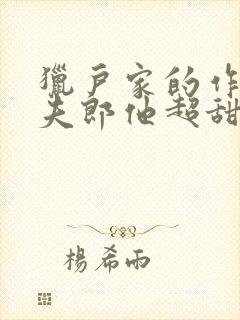 獵戶家的作
夫郎他超甜
楊希雨